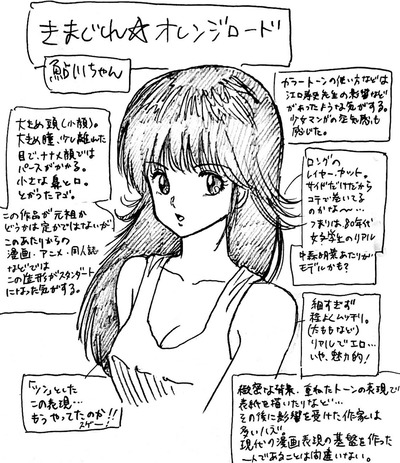 きまぐれ☆オレンジロード
鮎川ちゃん
カラートーンの使い方などは
江口寿史先生の影響など
があったような気がする。
少女マンガの空気感も
感じた。
大きめ頭(小顔)。
大きめ瞳、少し離れた
目で、ナナメ顔では
パースがかかる。
小さな鼻と口。
とがったアゴ。
この作品が元祖か
どうかは定かではないが
このあたりからの
漫画・アニメ・同人誌
などでは
この造形がスタンダード
になった気がする。
ロングの
レイヤーカット。
サイドだけだから
コテで巻いてる
のかな〜…
つまりは、80年代
女子学生のリアル
中森明菜あたりが
モデルかも?
細すぎず
程よくムッチリ。
(太ももなど)
リアルでエロ…
いや、魅力的!
「ツン」とした
この表現…
もうやってたのか!!
スゲー!
緻密な背景、重ねたトーンの表現で
表紙を描いたりなど…
その後に影響を受けた作家は
多いハズ。
現代の漫画表現の基盤を作った
一人であることは間違いない。